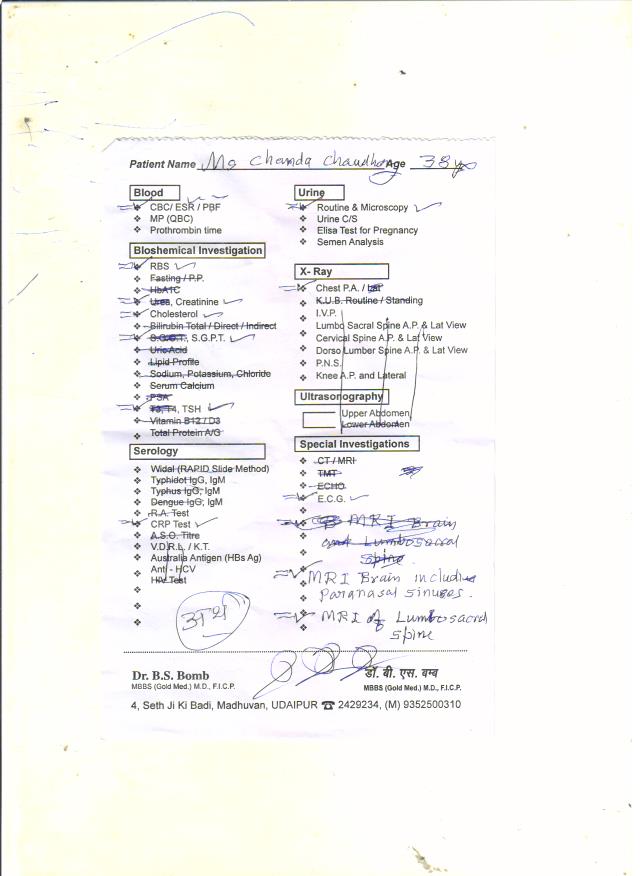 Patient Name Ms Chanda Chaudhary Age 38 yrs
Blood
CBC/ ESR / PBF
MP (QBC)
Prothrombin time
Bioshemical Investigation
RBS
Fasting / P.P.
HbA1C
Urea, Creatinine
Cholesterol
Bilirubin Total / Direct / Indirect
S.G.O.T., S.G.P.T.
Uric Acid
Lipid Profile
Sodium, Potassium, Chloride
Serum Calcium
PSA
T3, T4, TSH
Vitamin B12 / D3
Total Protein A/G
Serology
Widal (RAPID Slide Method)
Typhidot IgG, IgM
Typhus IgG, IgM
Dengue IgG, IgM
R.A. Test
CRP Test
A.S.O. Titre
V.D.R.L. / K.T.
Australia Antigen (HBs Ag)
Anti - HCV
HIV Test
Urine
Routine & Microscopy
Urine C/S
Elisa Test for Pregnancy
Semen Analysis
X- Ray
Chest P.A. / Lat
K.U.B. Routine / Standing
I.V.P.
Lumbo Sacral Spine A.P. & Lat View
Cervical Spine A.P. & Lat View
Dorso Lumber Spine A.P. & Lat View
P.N.S.
Knee A.P. and Lateral
Ultrasonography
Upper Abdomen
Lower Abdomen
Special Investigations
CT / MRI
TMT
ECHO
E.C.G.
MRI Brain
and Lumbosacral
Spine
MRI Brain including
Paranasal sinuses.
MRI of Lumbosacral
Spine
Dr. B.S. Bomb
MBBS (Gold Med.) M.D., F.I.C.P.
डॉ. बी. एस. बम्ब
MBBS (Gold Med.) M.D., F.I.C.P.
4, Seth Ji Ki Badi, Madhuvan, UDAIPUR ☎ 2429234, (M) 9352500310